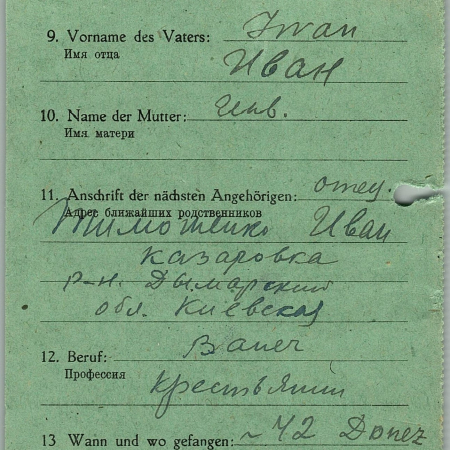 9. Vorname des Vaters: Iwan
Имя отца
Иван
10. Name der Mutter: Unb.
Имя матери
11. Anschrift der nächsten Angehörigen: отец.
Адрес ближайших родственников
Тимошенко Иван
Казаровка
р-н. Дымарский
обл. Киевская
12. Beruf: Bauer
Профессия
Крестьянин
13 Wann und wo gefangen: ~ 42 Donez